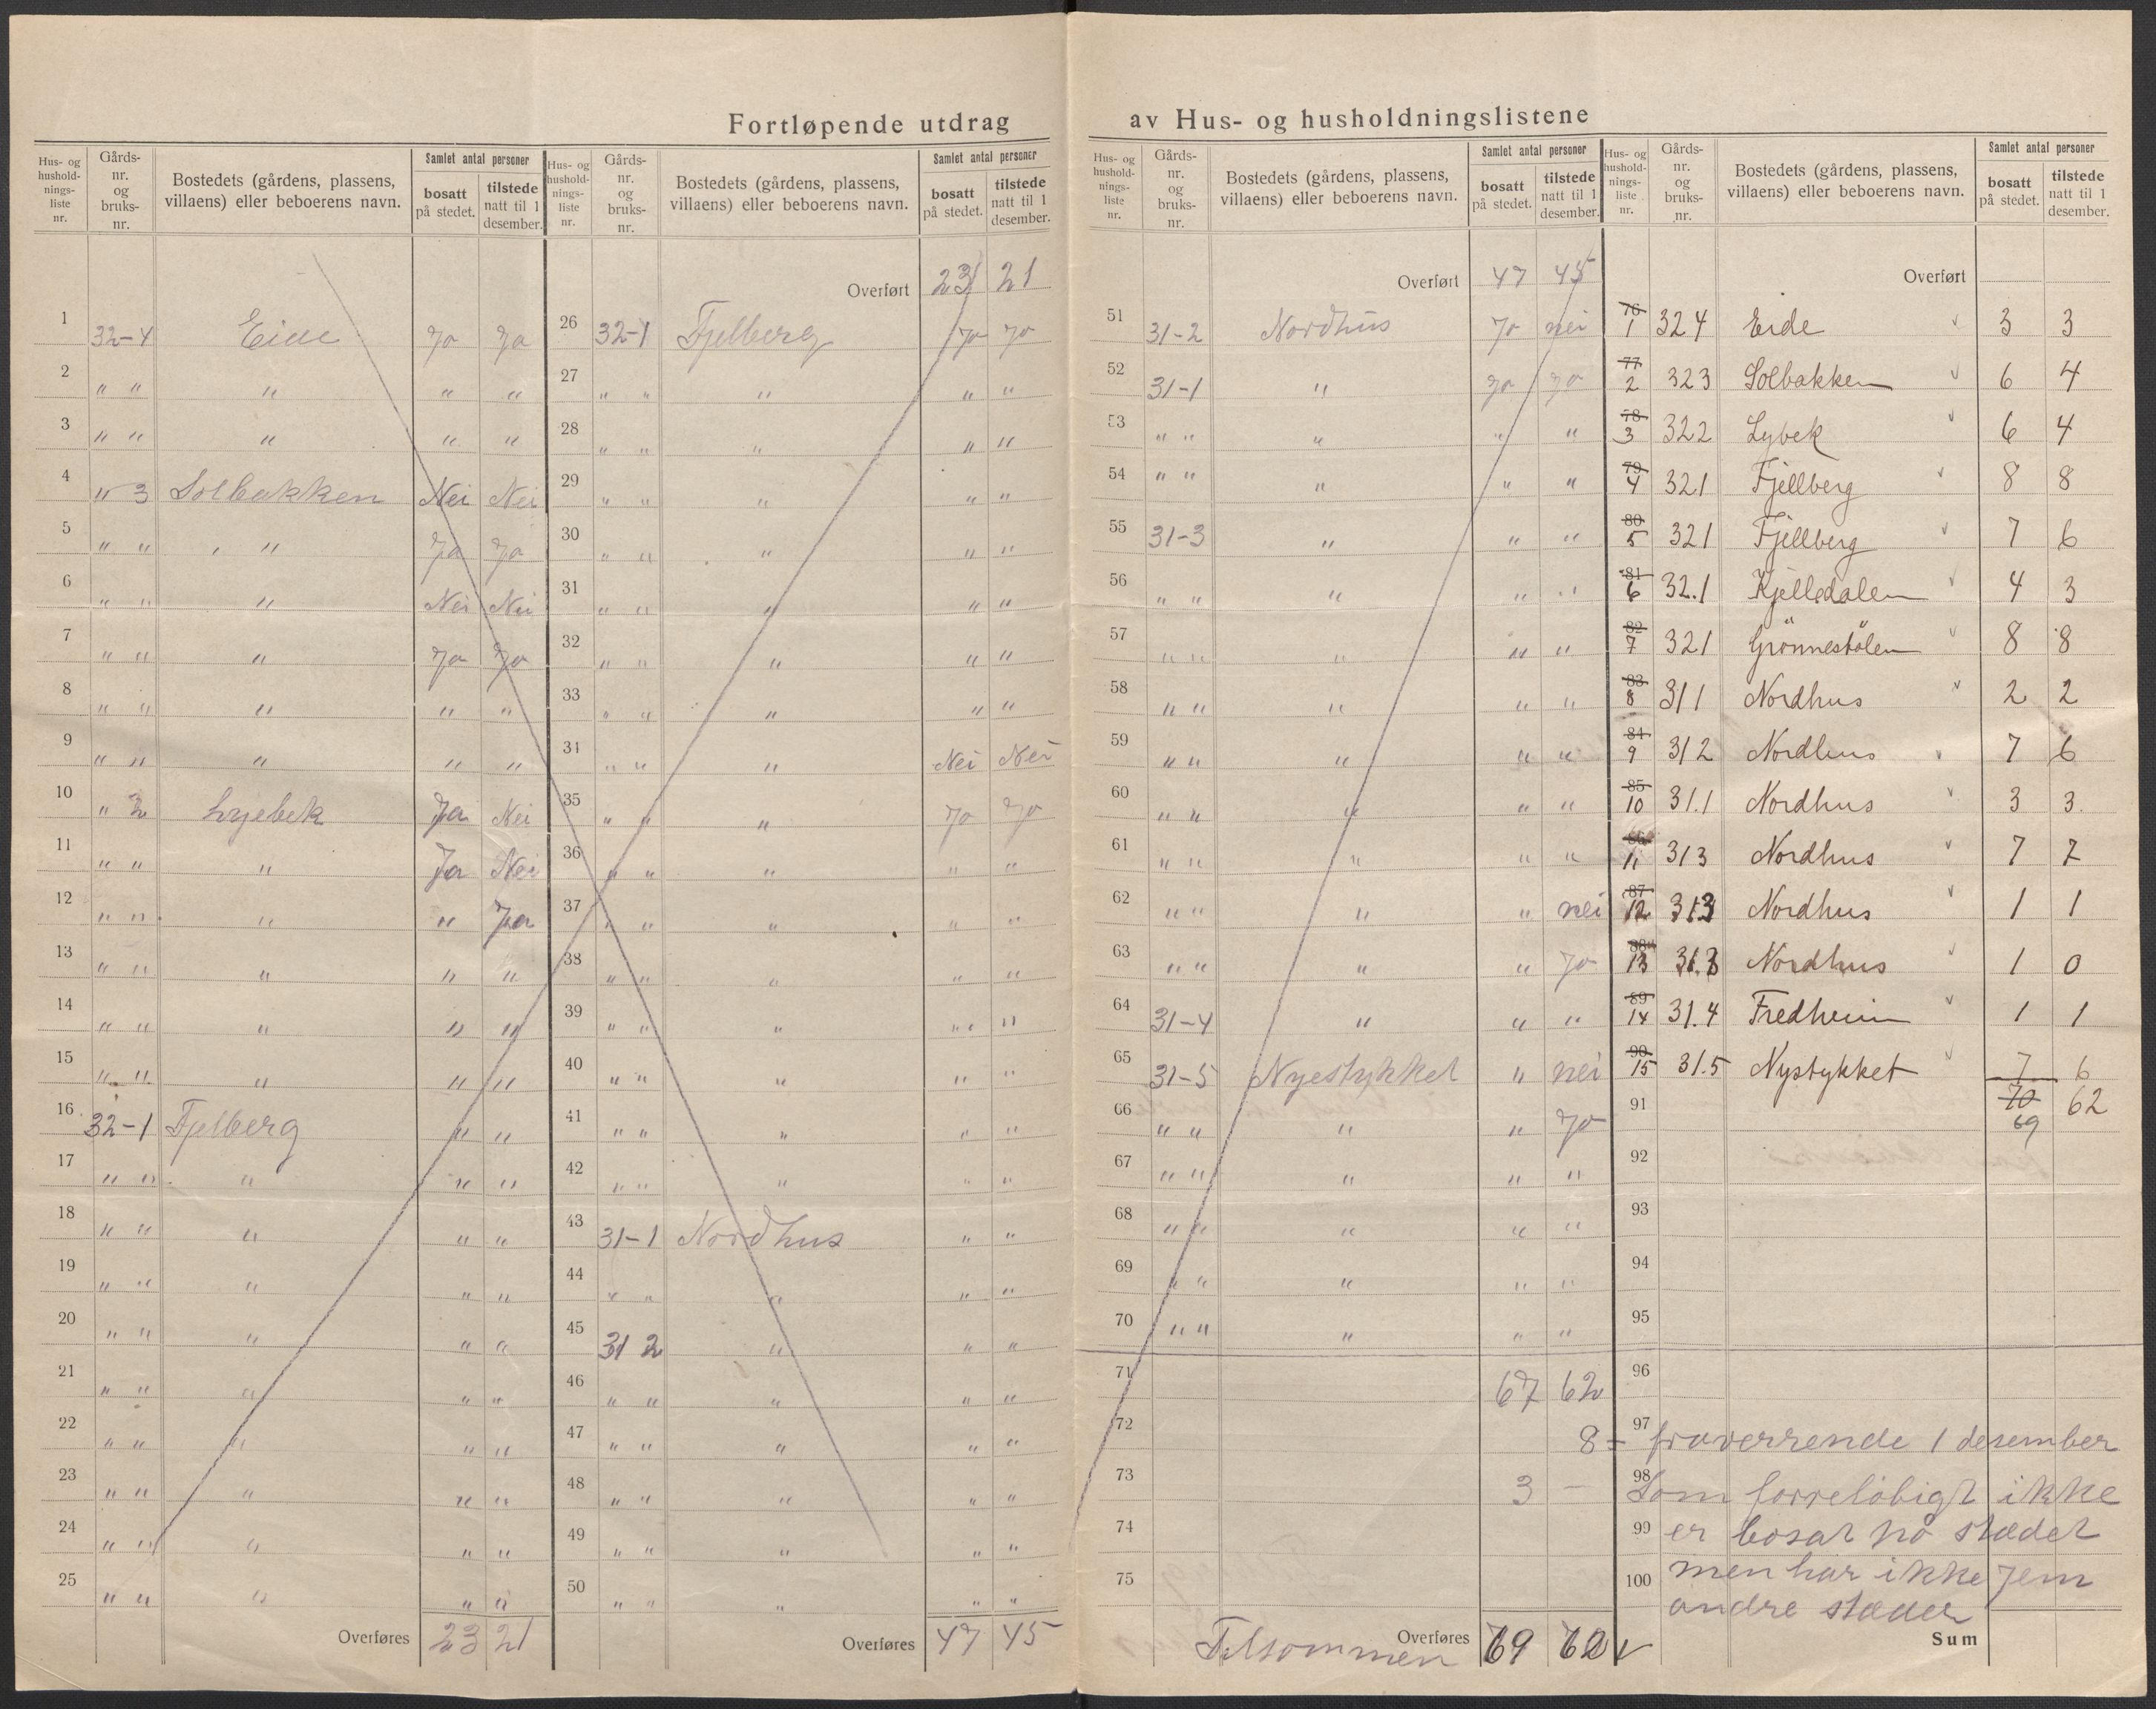 Fortløpende utdrag av Hus- og husholdningslistene
Hus- og hushold-nings-liste nr. | Gårds-nr. og bruks-nr. | Bostedets (gårdens, plassens, villaens) eller beboerens navn. | Samlet antal personer | bosatt på stedet. | tilstede natt til 1 desember.
1 32-4 Eide Ja Ja
2 " " " " "
3 " " " " "
4 " 3 Solbakken Nei Nei
5 " " " Ja Ja
6 " " " Nei Nei
7 " " " Ja Ja
8 " " " " "
9 " " " " "
10 " 2 Lyebek Ja Nei
11 " " " Ja Nei
12 " " " " Ja
13 " " " " "
14 " " " " "
15 " " " " "
16 32-1 Fjelberg " "
17 " " " " "
18 " " " " "
19 " " " " "
20 " " " " "
21 " " " " "
22 " " " " "
23 " " " " "
24 " " " " "
25 " " " " "
Overføres 23 21
Hus- og hushold-nings-liste nr. | Gårds-nr. og bruks-nr. | Bostedets (gårdens, plassens, villaens) eller beboerens navn. | Samlet antal personer | bosatt på stedet. | tilstede natt til 1 desember.
Overført 23 21
26 32-1 Fjelberg Ja Ja
27 " " " " "
28 " " " " "
29 " " " " "
30 " " " " "
31 " " " " "
32 " " " " "
33 " " " " "
34 " " " Nei Nei
35 " " " Ja Ja
36 " " " " "
37 " " " " "
38 " " " " "
39 " " " " "
40 " " " " "
41 " " " " "
42 " " " " "
43 31-1 Nordhus " "
44 " " " " "
45 31 2 " " "
46 " " " " "
47 " " " " "
48 " " " " "
49 " " " " "
50 " " " " "
Overføres 47 45
Hus- og hushold-nings-liste nr. | Gårds-nr. og bruks-nr. | Bostedets (gårdens, plassens, villaens) eller beboerens navn. | Samlet antal personer | bosatt på stedet. | tilstede natt til 1 desember.
Overført 47 45
51 31-2 Nordhus Ja nei
52 31-1 " Ja Ja
53 " " " " "
54 " " " " "
55 31-3 " " "
56 " " " " "
57 " " " " "
58 " " " " "
59 " " " " "
60 " " " " "
61 " " " " "
62 " " " " nei
63 " " " " Ja
64 31-4 " " "
65 31-5 Nyestykket " nei
66 " " " " Ja
67 " " " " "
68 " " " " "
69 " " " " "
70 " " " " "
71 67 62
72 8 =
73 3 –
74
75
Tilsammen Overføres 69 62
Hus- og hushold-nings-liste nr. | Gårds-nr. og bruks-nr. | Bostedets (gårdens, plassens, villaens) eller beboerens navn. | Samlet antal personer | bosatt på stedet. | tilstede natt til 1 desember.
Overført
76 1 324 Eide 3 3
77 2 323 Solbakken 6 4
78 3 322 Lybek 6 4
79 4 321 Fjellberg 8 8
80 5 321 Fjellberg 7 6
81 6 32.1 Kjelledalen 4 3
82 7 321 Grönnestölen 8 8
83 8 311 Nordhus 2 2
84 9 312 Nordhus 7 6
85 10 31.1 Nordhus 3 3.
86 11 313 Nordhus 7 7
87 12 313 Nordhus 1 1
88 13 31.3 Nordhus 1 0
89 14 31.4 Fredheim 1 1
90 15 31.5 Nystykket 7 6
91 70 62
69
92
93
94
95
96
97 fraverrende 1 desember
98 Som forreløbigt ikke
99 er bosat på stædet
100 men har ikke Jem
andre stæder
Sum